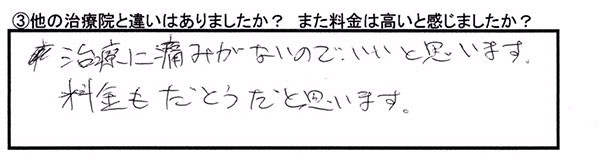 ③他の治療院と違いはありましたか？ また料金は高いと感じましたか？
治療に痛みがないので、いいと思います。
料金もだとうだと思います。